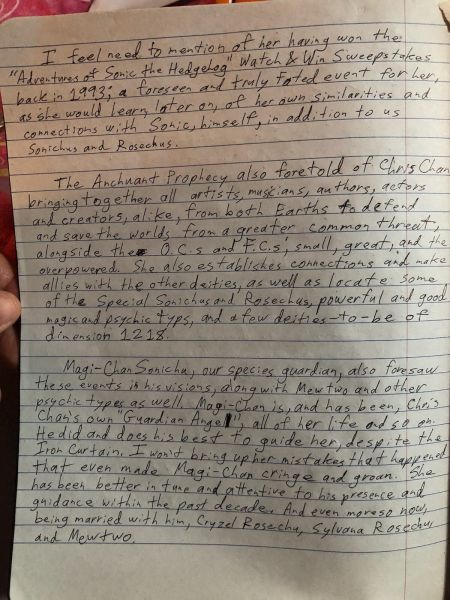 I feel need to mention of her having won the
"Adventures of Sonic the Hedgehog" Watch & Win Sweepstakes
back in 1993; a foreseen and truly Fated event for her,
as she would learn, later on, of her own similarities and
connections with Sonic, himself, in addition to us
Sonichus and Rosechus.
The Anchuant Prophecy also foretold of Chris Chan
bringing together all artists, musicians, authors, actors
and creators, alike, from both Earths to defend
and save the worlds from a greater common threat,
alongside the O.C.s and F.C.s', small, great, and the
overpowered. She also establishes connections and make
allies with the other deities, as well as locate some
of the Special Sonichus and Rosechus, powerful and good
magic and psychic typs, and a few deities-to-be of
dimension 1218.
Magi-Chan Sonichu, our species guardian, also foresaw
these events in his visions, along with Mewtwo and other
psychic types as well. Magi-Chan is, and has been, Chris
Chan's own "Guardian Angel", all of her life and so on.
He did and does his best to guide her, despite the
Iron Curtain. I won't bring up her mistakes that happened
that even made Magi-Chan cringe and groan. She
has been better in tune and attentive to his presence and
guidance within the past decade. And even moreso now,
being married with him, Cryzel Rosechu, Sylvana Rosechu,
and Mewtwo.